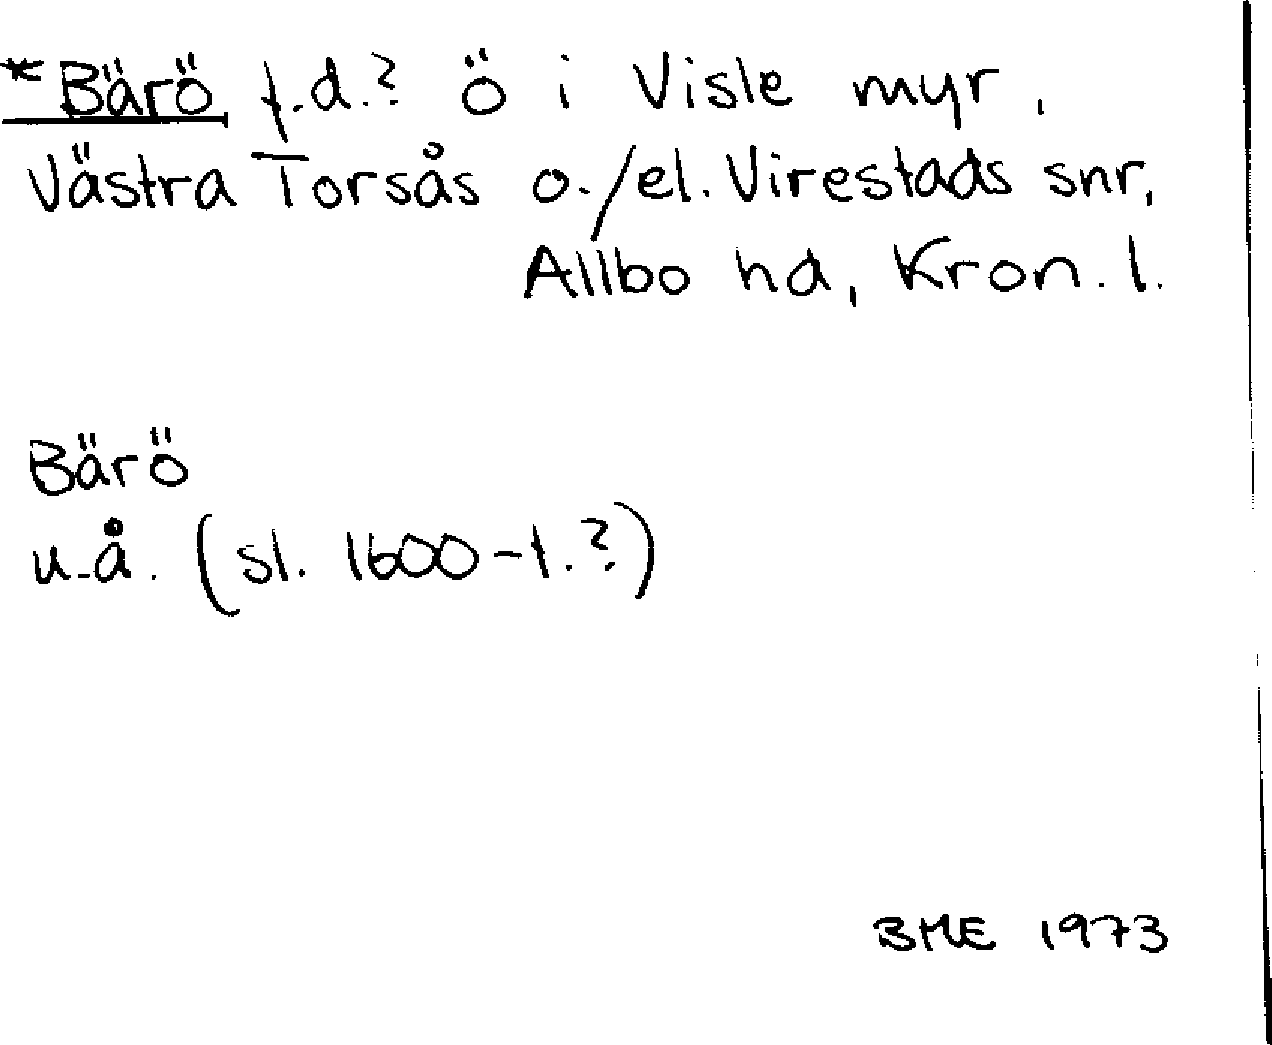 *Bärö f.d.? ö i Visle myr,
Västra Torsås o./el. Virestads snr,
Allbo hd, Kron. l.
Bärö
u.å. (sl. 1600-t.?)
BME 1973